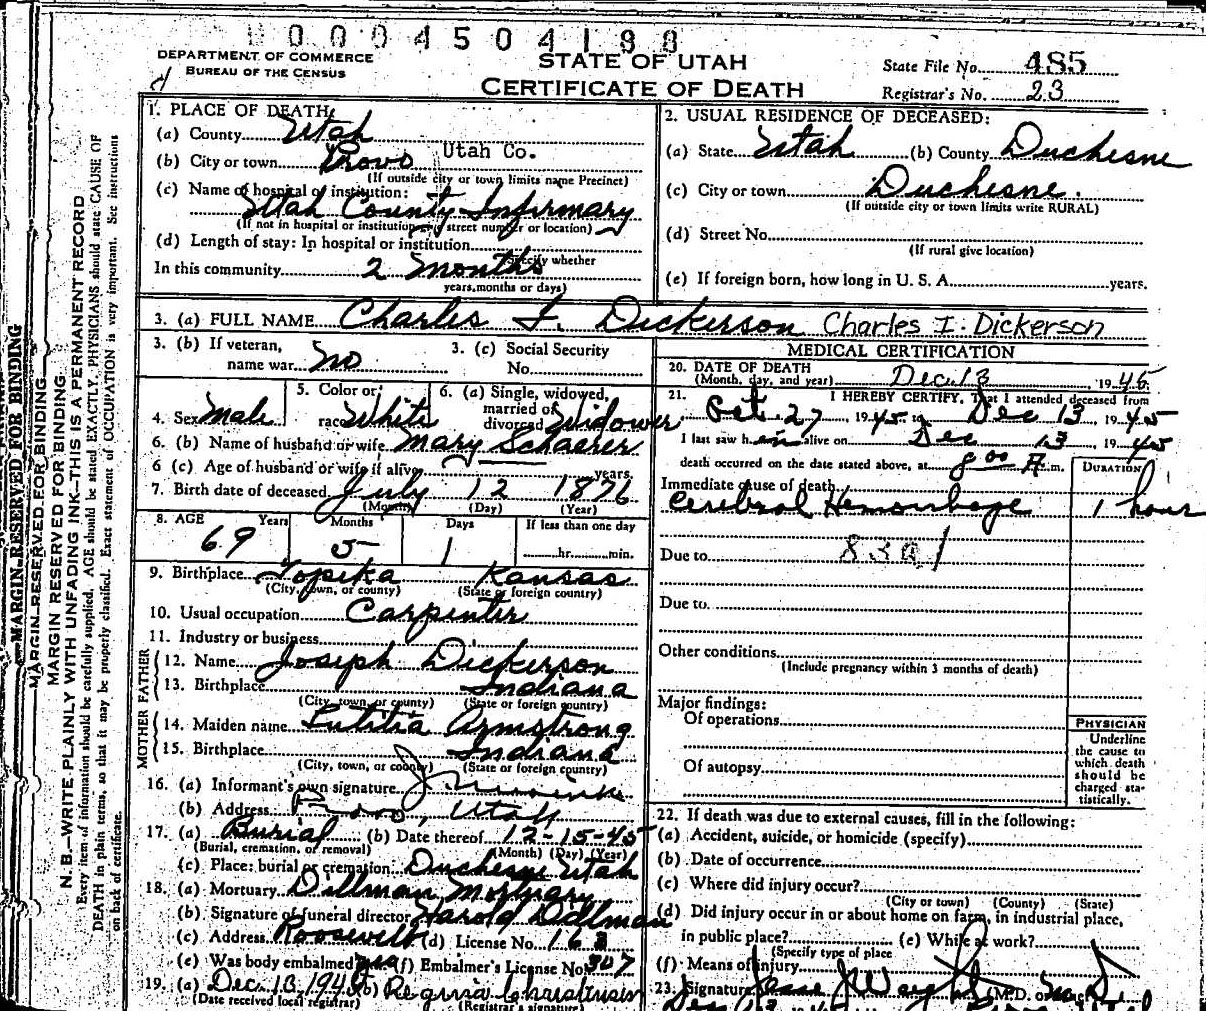 0004504188
DEPARTMENT OF COMMERCE
BUREAU OF THE CENSUS
STATE OF UTAH
CERTIFICATE OF DEATH
State File No. 485
Registrar's No. 23
1. PLACE OF DEATH:
(a) County Utah
(b) City or town Provo Utah Co.
(If outside city or town limits name Precinct)
(c) Name of hospital of institution:
Utah County Infirmary
(If not in hospital or institution street number or location)
(d) Length of stay: In hospital or institution
Specify whether
In this community 2 months
years, months or days)
2. USUAL RESIDENCE OF DECEASED:
(a) State Utah (b) County Duchesne
(c) City or town Duchesne.
(If outside city or town limits write RURAL)
(d) Street No.
(If rural give location)
(e) If foreign born, how long in U. S. A. years.
3. (a) FULL NAME Charles I. Dickerson Charles I. Dickerson
3. (b) If veteran, name war No
3. (c) Social Security No.
4. Sex Male
5. Color or race White
6. (a) Single, widowed, married or divorced Widower
6. (b) Name of husband or wife Mary Schaerer
6 (c) Age of husband or wife if alive years.
7. Birth date of deceased July 12 1876
(Month) (Day) (Year)
8. AGE Years Months Days If less than one day
69 5 1 hr. min.
9. Birthplace Topika Kansas
(City, town, or county) (State or foreign country)
10. Usual occupation Carpenter
11. Industry or business
FATHER
12. Name Joseph Dickerson
13. Birthplace Indiana
(City, town, or county) (State or foreign country)
MOTHER
14. Maiden name Lutitia Armstrong
15. Birthplace Indiana
(City, town, or county) (State or foreign country)
16. (a) Informant's own signature
(b) Address Provo, Utah
17. (a) Burial (b) Date thereof 12-15-45
(Burial, cremation, or removal) (Month) (Day) (Year)
(c) Place: burial or cremation Duchesne Utah
18. (a) Mortuary Dillman Mortuary
(b) Signature of funeral director Harold Dillman
(c) Address Roosevelt (d) License No. 163
(e) Was body embalmed (f) Embalmer's License No. 307
19. (a) Dec. 13, 194 (b) Regina Christensen
(Date received local registrar) (Registrar's signature)
MEDICAL CERTIFICATION
20. DATE OF DEATH
(Month, day, and year) Dec 13, 1945
21. I HEREBY CERTIFY, That I attended deceased from
Oct 27, 1945 to Dec 13, 1945
I last saw him alive on Dec 13, 1945
death occurred on the date stated above, at 8 00 A. m.
DURATION
Immediate cause of death
Cerebral Hemorrhage 1 hour
Due to 83a1
Due to
Other conditions
(Include pregnancy within 3 months of death)
Major findings:
Of operations
Of autopsy
PHYSICIAN
Underline
the cause to
which death
should be
charged sta-
tistically.
22. If death was due to external causes, fill in the following:
(a) Accident, suicide, or homicide (specify)
(b) Date of occurrence
(c) Where did injury occur?
(City or town) (County) (State)
(d) Did injury occur in or about home on farm, in industrial place,
in public place? (e) While at work?
(Specify type of place
(f) Means of injury
23. Signature M.D. or
MARGIN RESERVED FOR BINDING
MARGIN RESERVED FOR BINDING
MARGIN RESERVED FOR BINDING
N. B.—WRITE PLAINLY WITH UNFADING INK—THIS IS A PERMANENT RECORD
Every item of information should be carefully supplied. AGE should be stated EXACTLY. PHYSICIANS should state CAUSE OF
DEATH in plain terms, so that it may be properly classified. Exact statement of OCCUPATION is very important. See instructions
on back of certificate.